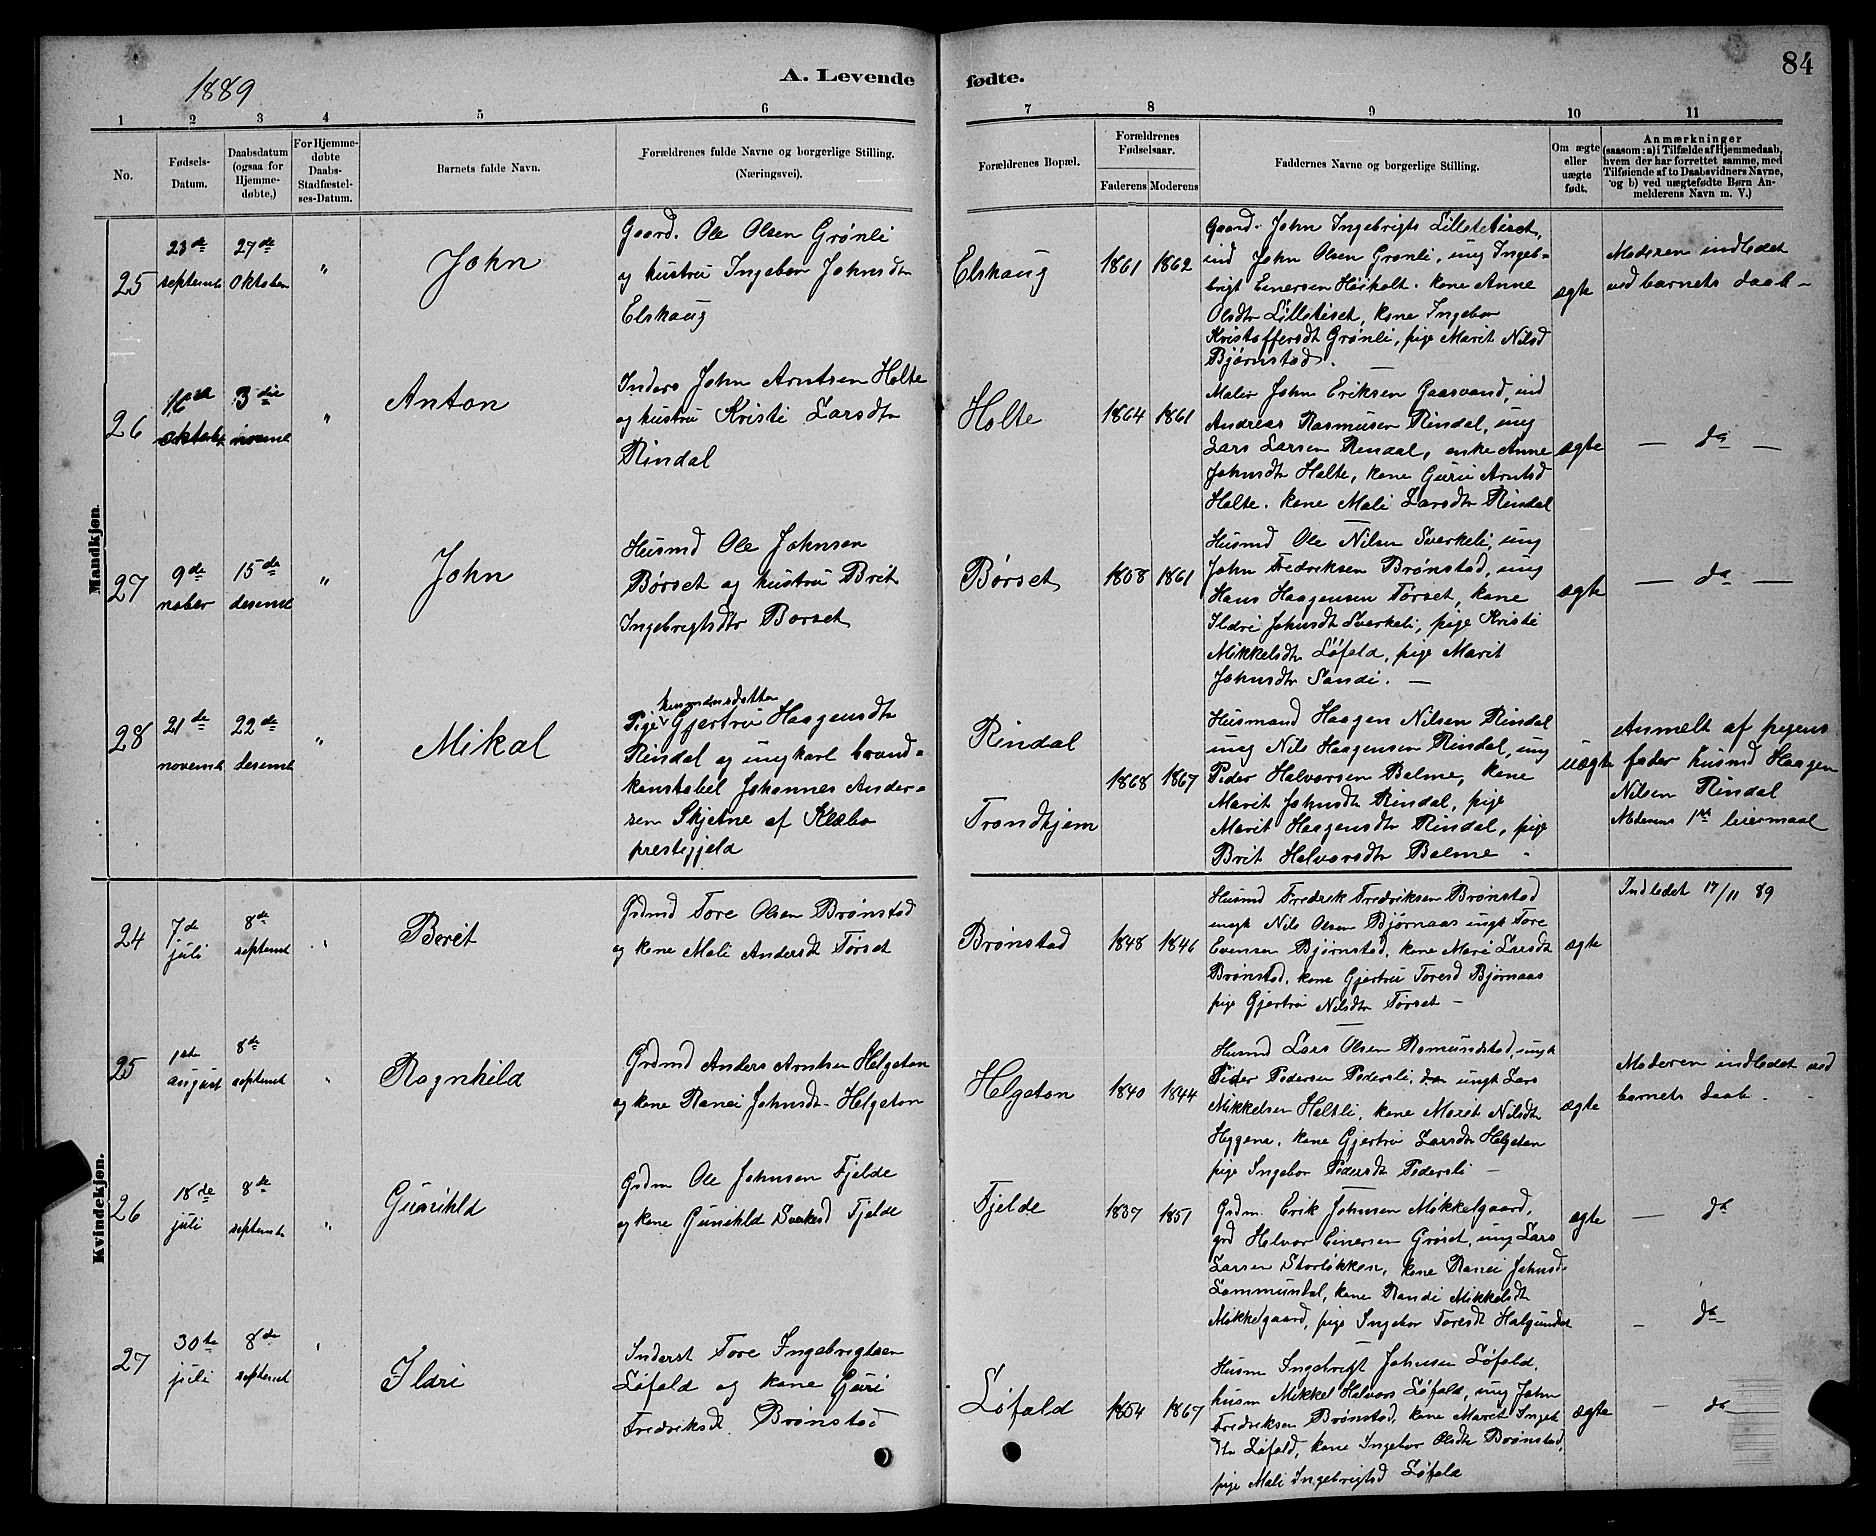 1889
A. Levende fødte.
84
1 2 3 4 5 6 7 8 9 10 11
No.
Fødsels-Datum.
Daabsdatum (ogsaa for Hjemme-døbte.)
For Hjemme-døbte Daabs-Stadfæstel-ses-Datum.
Barnets fulde Navn.
Forældrenes fulde Navne og borgerlige Stilling.
(Næringsvei).
Forældrenes Bopæl.
Forældrenes Fødselsaar.
Faderens Moderens
Faddernes Navne og borgerlige Stilling.
Om ægte eller uægte født.
Anmærkninger
(saasom: a) i Tilfælde af Hjemmedaab,
hvem der har forrettet samme, med
Tilføiende af to Daabsvidners Navne,
og b) ved uægtefødte Børn An-
melderens Navn m. V.)
Mandkjøn.
25
23de septemb
27de Oktober
"
John
Gaard. Ole Olsen Grønli
og hustru Ingebor Johnsdtr
Elshaug
Elshaug
1861 1862
Gaard. John Ingebrigts Lilletiset,
ind John Olsen Grønli, ung Ingeb-
brigt Einersen Høiholt. kone Anne
Olsdtr Lilletiset, kone Ingebor
Kristoffersdt Grønli, pige Marit Nilsd
Bjørnstad.
ægte
Moderen indledet
ved barnets daab -
26
16de oktober
3die novemb
"
Anton
Inders John Arntsen Holte
og hustru Kristi Larsdtr
Rindal
Holte
1864 1861
Maler John Eriksen Gaasvand, ind
Andreas Rasmusen Rindal, ung
Lars Larsen Rindal, enke Anne
Johnsdtr Holte, kone Guru Arntsd
Holte. kone Mali Larsdtr Rindal
ægte
— do —
27
9de nober
15de desemb
"
John
Husmd Ole Johnsen
Børset og hustru Brit
Ingebrigtsdtr Børset
Børset
1858 1861
Husmd Ole Nilsen Sverkeli, ung
John Fredriksen Brønstad, ung
Hans Haagensen Tørset, kone
Ildri Johnsdt Sverkeli, pige Kristi
Mikkelsdtr Løfald, pige Marit
Johnsdtr Sande. —
ægte
— do —
28
21de novemb
22de desemb
"
Mikal
husmandsdatter
Pige Gjertru Haagensdtr
Rindal og ungkarl brand-
konstabel Johannes Ander-
sen Skjetne af Klæbo
prestegjeld
Rindal
Trondhjem
1868 1867
Husmand Haagen Nilsen Rindal
ung Nils Haagensen Rindal, ung
Peder Halvorsen Bolme, kone
Marit Johnsdtr Rindal, pige
Marit Haagensdtr Rindal, pige
Brit Halvorsdtr Bolme
uægte
Anmelt af pigens
fader husmd Haagen
Nilsen Rindal
Moderens 1ste leiermaal
Kvindekjøn.
24
7de juli
8de septemb
"
Berit
Grdmd Tore Olsen Brønstad
og kone Mali Andersdt Tørset
Brønstad
1848 1846
Husmd Fredrik Fredriksen Brønstad
ungk Nils Olsen Bjørnaas ungk Tore
Evensen Bjørnstad, kone Mari Larsdt
Brønstad, kone Gjertru Toresd Bjørnaas
pige Gjertru Nilsdtr Tørset —
ægte
Indledet 17/11 89
25
1ste august
8de septemb
"
Ragnhild
Grdmd Anders Arntsen Helgeton
og kone Ranei Johnsdt- Helgeton
Helgeton
1840 1844
Husmd Lars Olsen Romundstad, ungk
Peder Pedersen Pedersli, ungk Lars
Mikkelsen Holtli, kone Marit Nilsdtr
Heggena, kone Gjertru Larsdtr Helgeton
pige Ingebor Pedersdt Pedersli —
ægte
Moderen indledet ved
barnets daab -
26
18de juli
8de septemb
"
Gunhild
Grdm Ole Johnsen Fjelde
og kone Gunhild Fjelde
Fjelde
1837 1851
Grdm. Erik Johnsen Mikkelgaard,
grd Halvor Einersen Grøset, ung Lars
Larsen Storløkken, kone Ranei Johnsd-
Lommundal, kone Randi Mikkelsdt
Mikkelgaard, pige Ingebor Toresdt Halgunset
ægte
— do
27
30te juli
8de septemb
"
Ildri
Inderst Tore Ingebrigtsen
Løfald og kone Guri
Fredriksdt. Brønstad
Løfald
1854 1867
Husm Ingebrigt Johnsen Løfald,
husm Mikkel Halvors Løfald, ung John
Fredriksen Brønstad, kone Marit Ingeb
dtr Løfald, kone Ingebor Olsdtr Brønstad,
pige Mali Ingebrigtsd Løfald
ægte
— do
— do